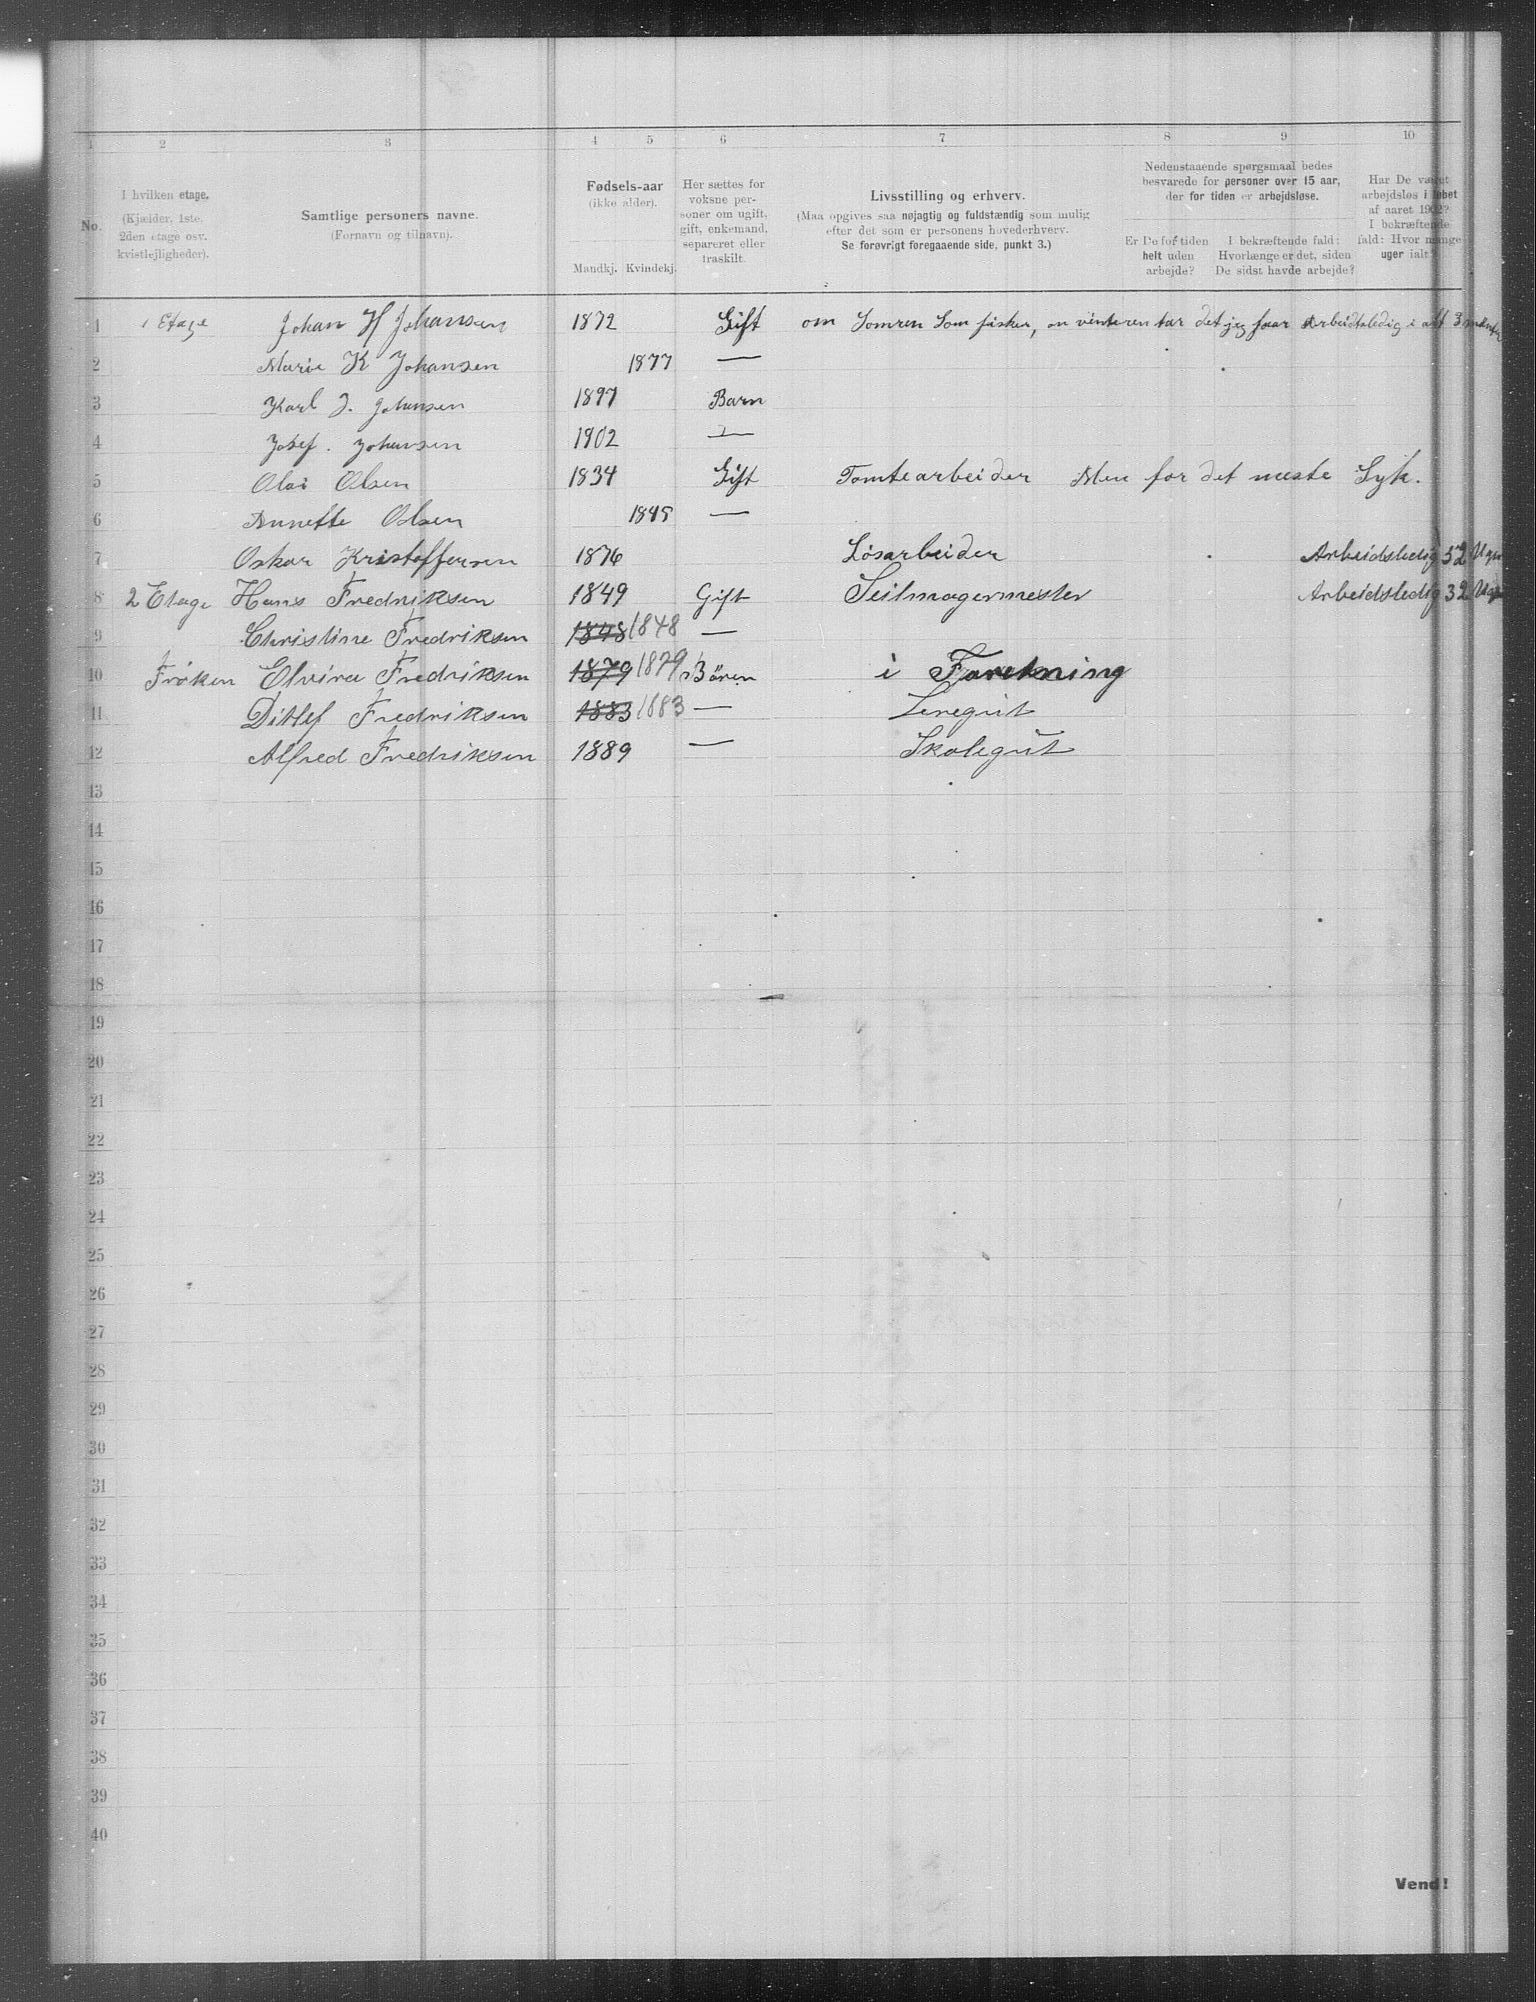 1 2 3 4 5 6 7 8 9 10
No.
I hvilken etage.
(Kjælder, 1ste.
2den etage osv.
kvistlejligheder).
Samtlige personers navne.
(Fornavn og tilnavn).
Fødsels-aar
(ikke alder).
Mandkj. Kvindekj.
Her sættes for
voksne per-
soner om ugift,
gift, enkemand,
separeret eller
fraskilt.
Livsstilling og erhverv.
(Maa opgives saa nøjagtig og fuldstændig som mulig
efter det som er personens hovederhverv.
Se forøvrigt foregaaende side, punkt 3.)
Nedenstaaende spørgsmaal bedes
besvarede for personer over 15 aar,
der for tiden er arbejdsløse.
Er De for tiden
helt uden
arbejde?
I bekræftende fald:
Hvorlænge er det, siden
De sidst havde arbejde?
Har De været
arbejdsløs i løbet
af aaret 1902?
I bekræftende
fald: Hvor mange
uger ialt?
1 1 Etage Johan H Johansen 1872 Gift om Somren Som fisker, om vinteren tar det jeg faar Arbeidtsledig i alt 3
2 Marie K Johansen 1877 —
3 Karl J. Johansen 1897 Barn
4 Josef. Johansen 1902 —
5 Olai Olsen 1834 Gift Tomtearbeider Men for det meste Syk.
6 Annette Olsen 1845 —
7 Oskar Kristoffersen 1876 Løsarbeider Arbeidsledig 52 Uger
8 2 Etage Hans Fredriksen 1849 Gift Seilmagermester Arbeidsledig 32 Uger
9 Christine Fredriksen 1848 1848 —
10 Frøken Elvira Fredriksen 1879 1879 Børen i Foretning
11 Ditlef Fredriksen 1883 1883 — Leregut
12 Alfred Fredriksen 1889 — Skolegut
13
14
15
16
17
18
19
20
21
22
23
24
25
26
27
28
29
30
31
32
33
34
35
36
37
38
39
40
Vend!